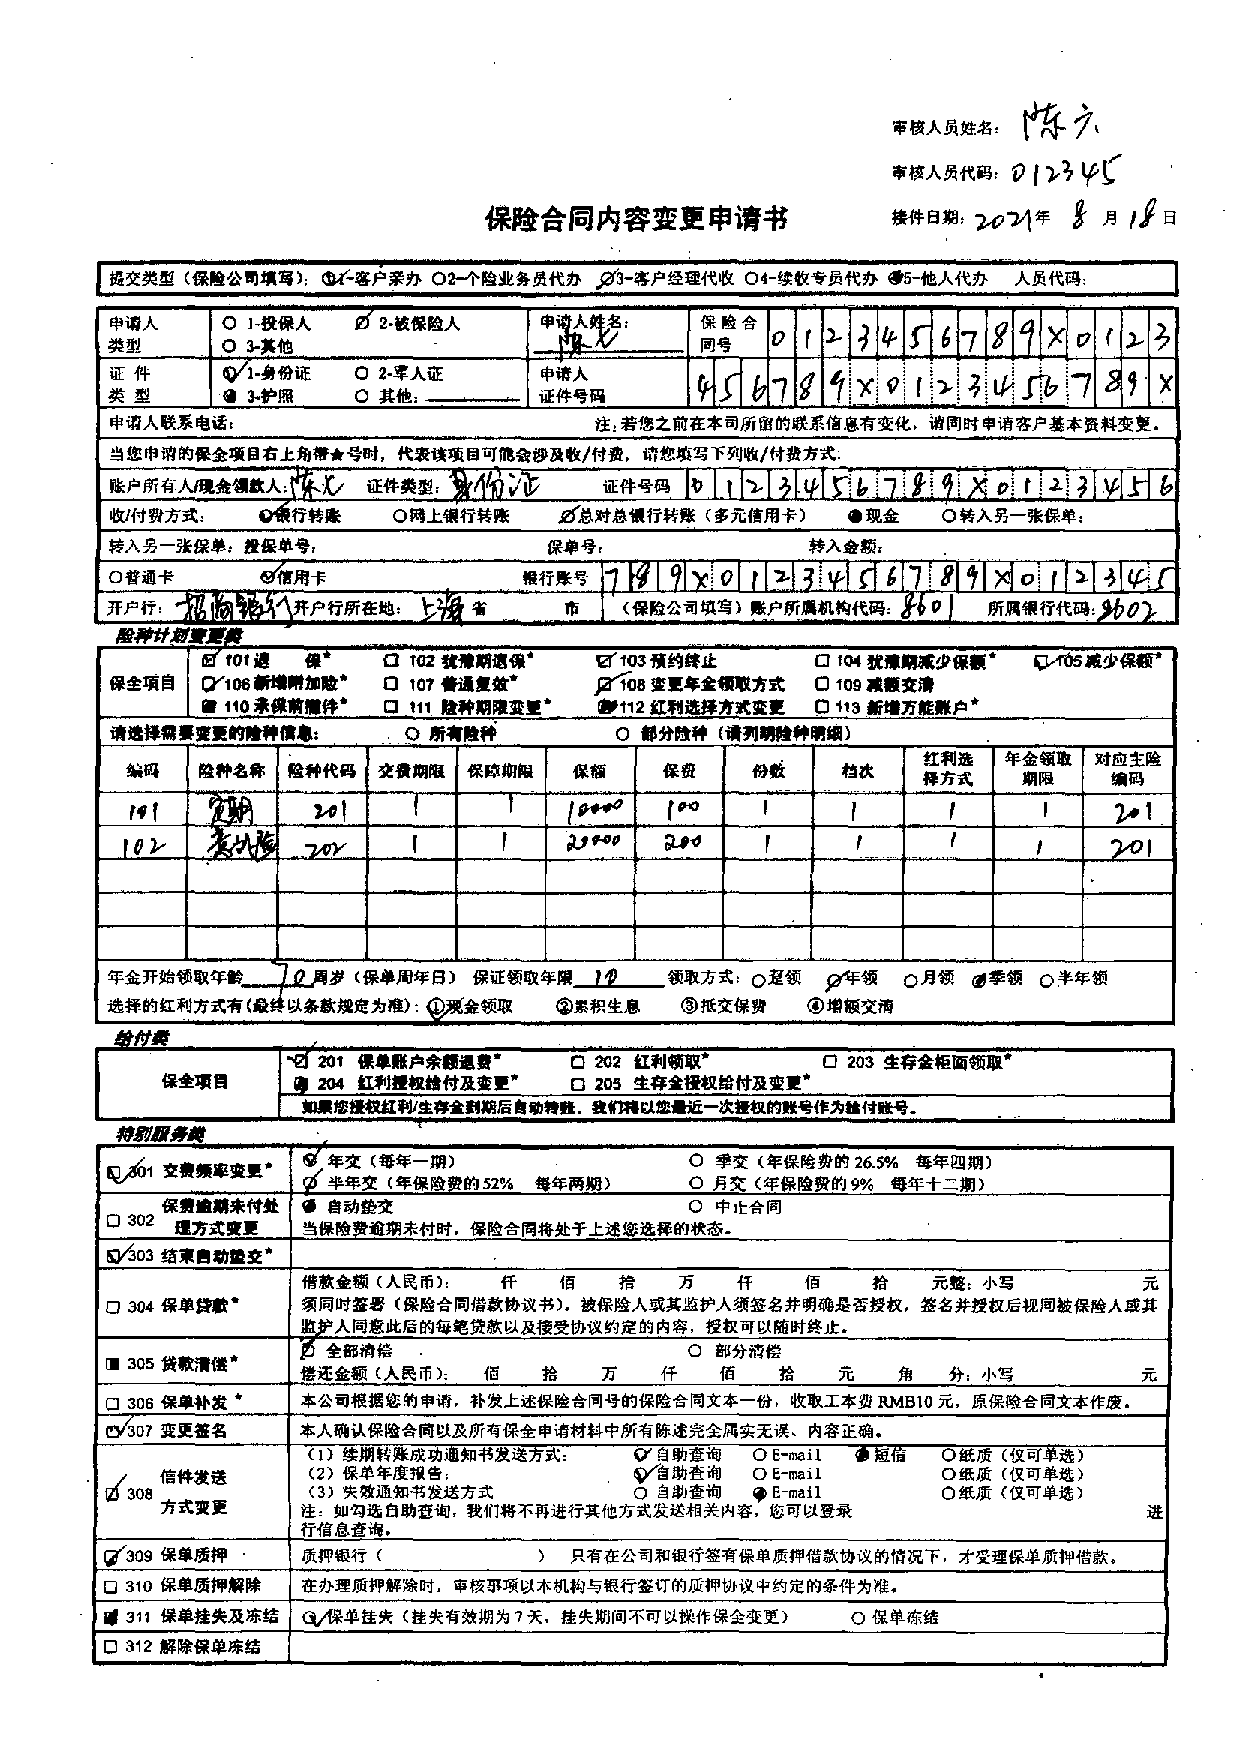 审核人员姓名：陈六
审核人员代码：012345
保险合同内容变更申请书 接件日期：2021年 8 月 18 日
提交类型（保险公司填写）：○1-客户亲办 ○2-个险业务员代办 ○3-客户经理代收 ○4-续收专员代办 ●5-他人代办 人员代码：
申请人类型 ○ 1-投保人 ○ 2-被保险人 ○ 3-其他 申请人姓名： 保险合同号 0123456789X0123
证件类型 ○ 1-身份证 ○ 2-军人证 ● 3-护照 ○ 其他：____ 申请人证件号码 456789X0123456789X
申请人联系电话： 注：若您之前在本司所留的联系信息有变化，请同时申请客户基本资料变更。
当您申请的保全项目右上角带★号时，代表该项目可能会涉及收/付费，请您填写下列收/付费方式：
账户所有人/现金领款人： 证件类型：身份证 证件号码 0123456789X0123456
收/付费方式： ○银行转账 ○网上银行转账 ○总对总银行转账（多元信用卡） ●现金 ○转入另一张保单：
转入另一张保单：投保单号： 保单号： 转入金额：
○普通卡 ○信用卡 银行账号 789X0123456789X012345
开户行：招商银行 开户行所在地：上海省 市 （保险公司填写）账户所属机构代码：8601 所属银行代码：8602
险种计划变更类
保全项目 ☑ 101 退 保* □ 102 犹豫期退保* ☑ 103 预约终止 □ 104 犹豫期减少保额* ☑ 105 减少保额*
☑ 106 新增附加险* □ 107 普通复效* ☑ 108 变更年金领取方式 □ 109 减额交清
■ 110 承保前撤件* □ 111 险种期限变更* ■ 112 红利选择方式变更 □ 113 新增万能账户*
请选择需要变更的险种信息： ○ 所有险种 ○ 部分险种（请列明险种明细）
编码 险种名称 险种代码 交费期限 保障期限 保额 保费 份数 档次 红利选择方式 年金领取期限 对应主险编码
101 定期 201 1 1 10000 100 1 1 1 1 201
102 意外险 202 1 1 20000 200 1 1 1 1 201
年金开始领取年龄 70 周岁（保单周年日） 保证领取年限 10 领取方式：○趸领 ○年领 ○月领 ●季领 ○半年领
选择的红利方式有（最终以条款规定为准）：①现金领取 ②累积生息 ③抵交保费 ④增额交清
给付类
保全项目 ☑ 201 保单账户余额退费* □ 202 红利领取* □ 203 生存金柜面领取*
■ 204 红利授权给付及变更* □ 205 生存金授权给付及变更*
如果您授权红利/生存金到期后自动转账，我们将以您最近一次授权的账号作为给付账号。
特别服务类
☑ 301 交费频率变更* ○ 年交（每年一期） ○ 季交（年保险费的 26.5% 每年四期）
○ 半年交（年保险费的 52% 每年两期） ○ 月交（年保险费的 9% 每年十二期）
□ 302 保费逾期未付处理方式变更 ● 自动垫交 ○ 中止合同
当保险费逾期未付时，保险合同将处于上述您选择的状态。
☑ 303 结束自动垫交*
□ 304 保单贷款* 借款金额（人民币）： 仟 佰 拾 万 仟 佰 拾 元整；小写 元
须同时签署（保险合同借款协议书），被保险人或其监护人须签名并明确是否授权，签名并授权后视同被保险人或其
监护人同意此后的每笔贷款以及接受协议约定的内容，授权可以随时终止。
■ 305 贷款清偿* ○ 全部清偿 ○ 部分清偿
偿还金额（人民币）： 佰 拾 万 仟 佰 拾 元 角 分；小写 元
□ 306 保单补发* 本公司根据您的申请，补发上述保险合同号的保险合同文本一份，收取工本费 RMB10 元，原保险合同文本作废。
☑ 307 变更签名 本人确认保险合同以及所有保全申请材料中所有陈述完全属实无误、内容正确。
☑ 308 信件发送方式变更 （1）续期转账成功通知书发送方式： ○ 自助查询 ○ E-mail ● 短信 ○纸质（仅可单选）
（2）保单年度报告： ○ 自助查询 ○ E-mail ○纸质（仅可单选）
（3）失效通知书发送方式 ○ 自助查询 ● E-mail ○纸质（仅可单选）
注：如勾选自助查询，我们将不再进行其他方式发送相关内容，您可以登录 进
行信息查询。
☑ 309 保单质押 质押银行（ ） 只有在公司和银行签有保单质押借款协议的情况下，才受理保单质押借款。
□ 310 保单质押解除 在办理质押解除时，审核事项以本机构与银行签订的质押协议中约定的条件为准。
■ 311 保单挂失及冻结 ○ 保单挂失（挂失有效期为 7 天，挂失期间不可以操作保全变更） ○ 保单冻结
□ 312 解除保单冻结